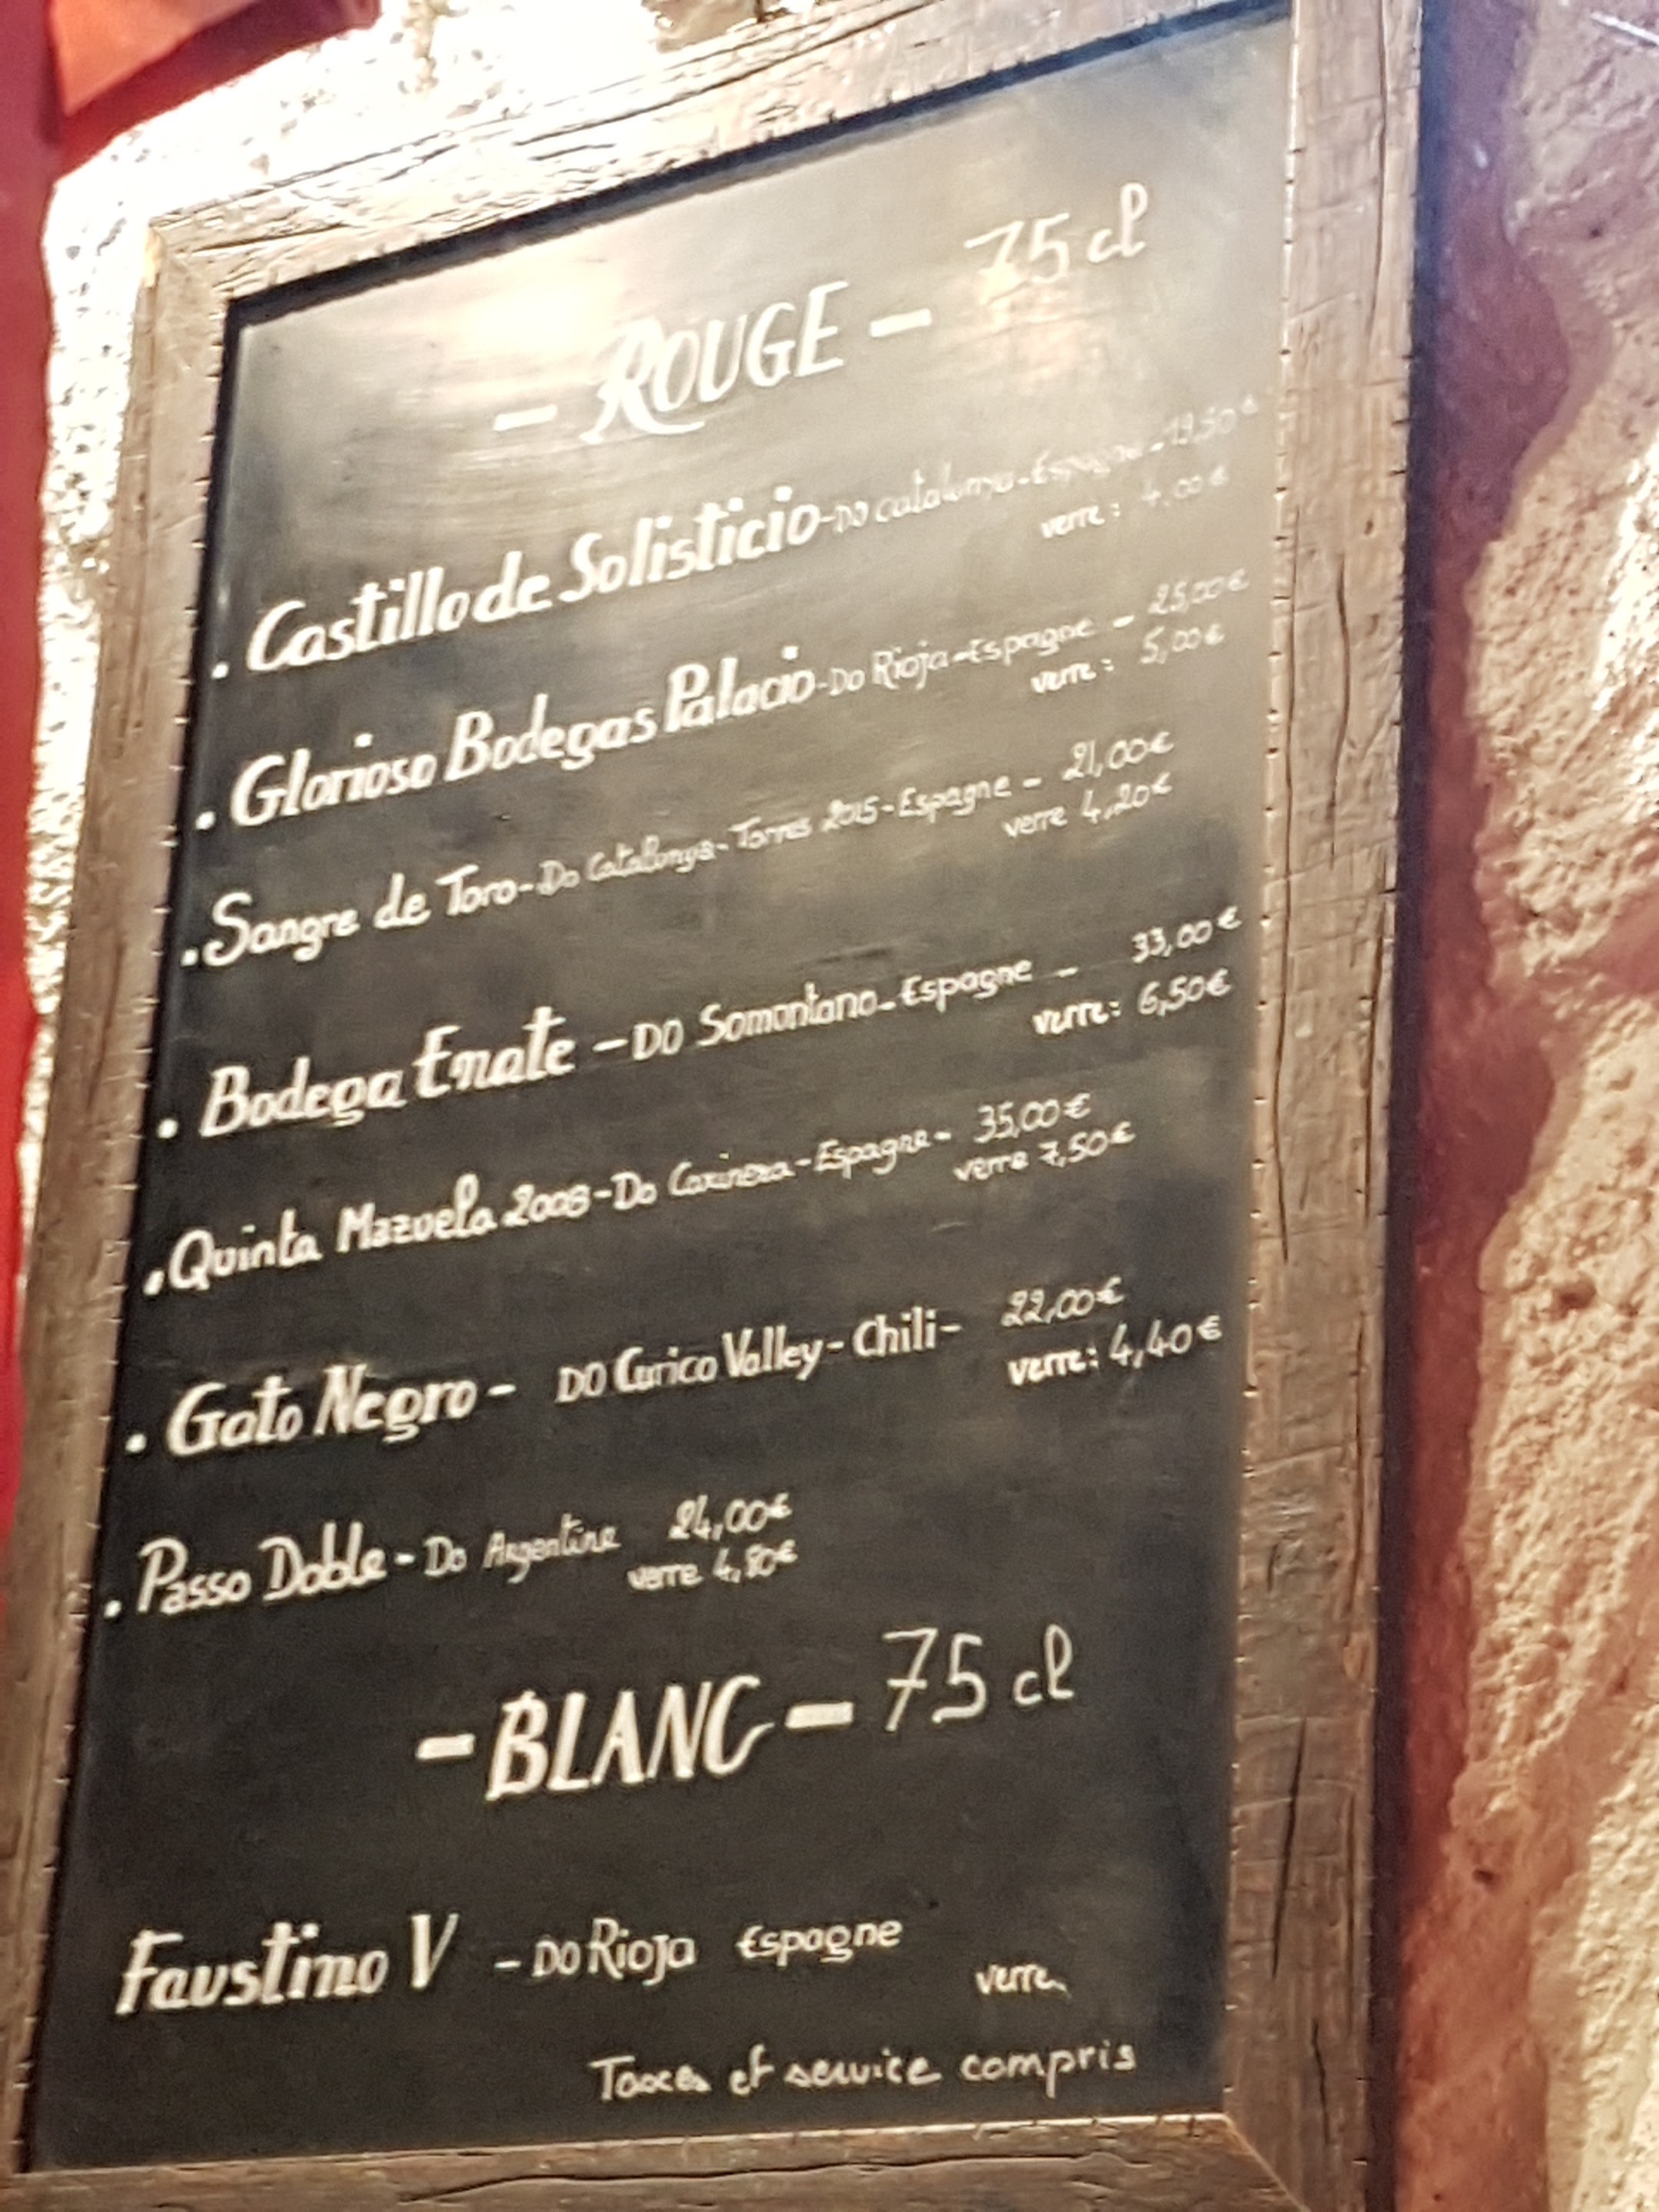 - ROUGE - 75 cl
. Castillo de Solisticio - DO catalunya - Espagne - 19,50 €
verre : 4,00 €
. Glorioso Bodegas Palacio - Do Rioja - Espagne - 25,00 €
verre : 5,00 €
. Sangre de Toro - Do Catalunya - Torres 2015 - Espagne - 21,00 €
verre 4,20 €
. Bodega Enate - DO Somontano - Espagne - 33,00 €
verre : 6,50 €
. Quinta Mazuela 2008 - Do Carinera - Espagne - 35,00 €
verre 7,50 €
. Gato Negro - DO Curico Valley - Chili - 22,00 €
verre : 4,40 €
. Passo Doble - Do Argentine 24,00 €
verre 4,80 €
- BLANC - 75 cl
Faustino V - DO Rioja Espagne
verre
Taxes et service compris